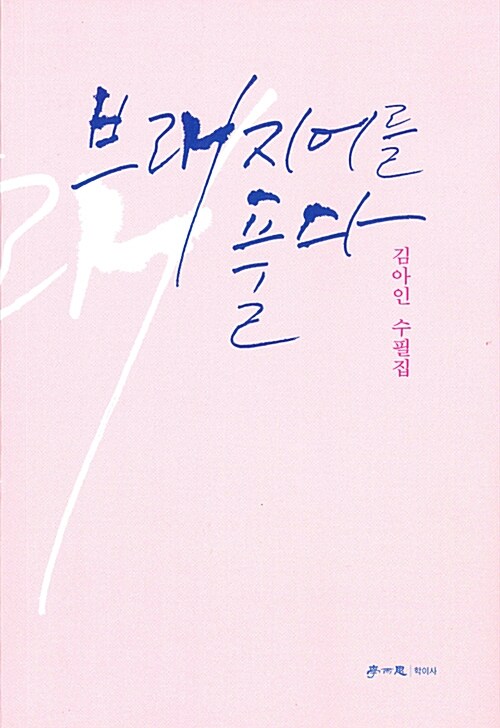 브래지어를
풀다
김아인 수필집
學而思 학이사